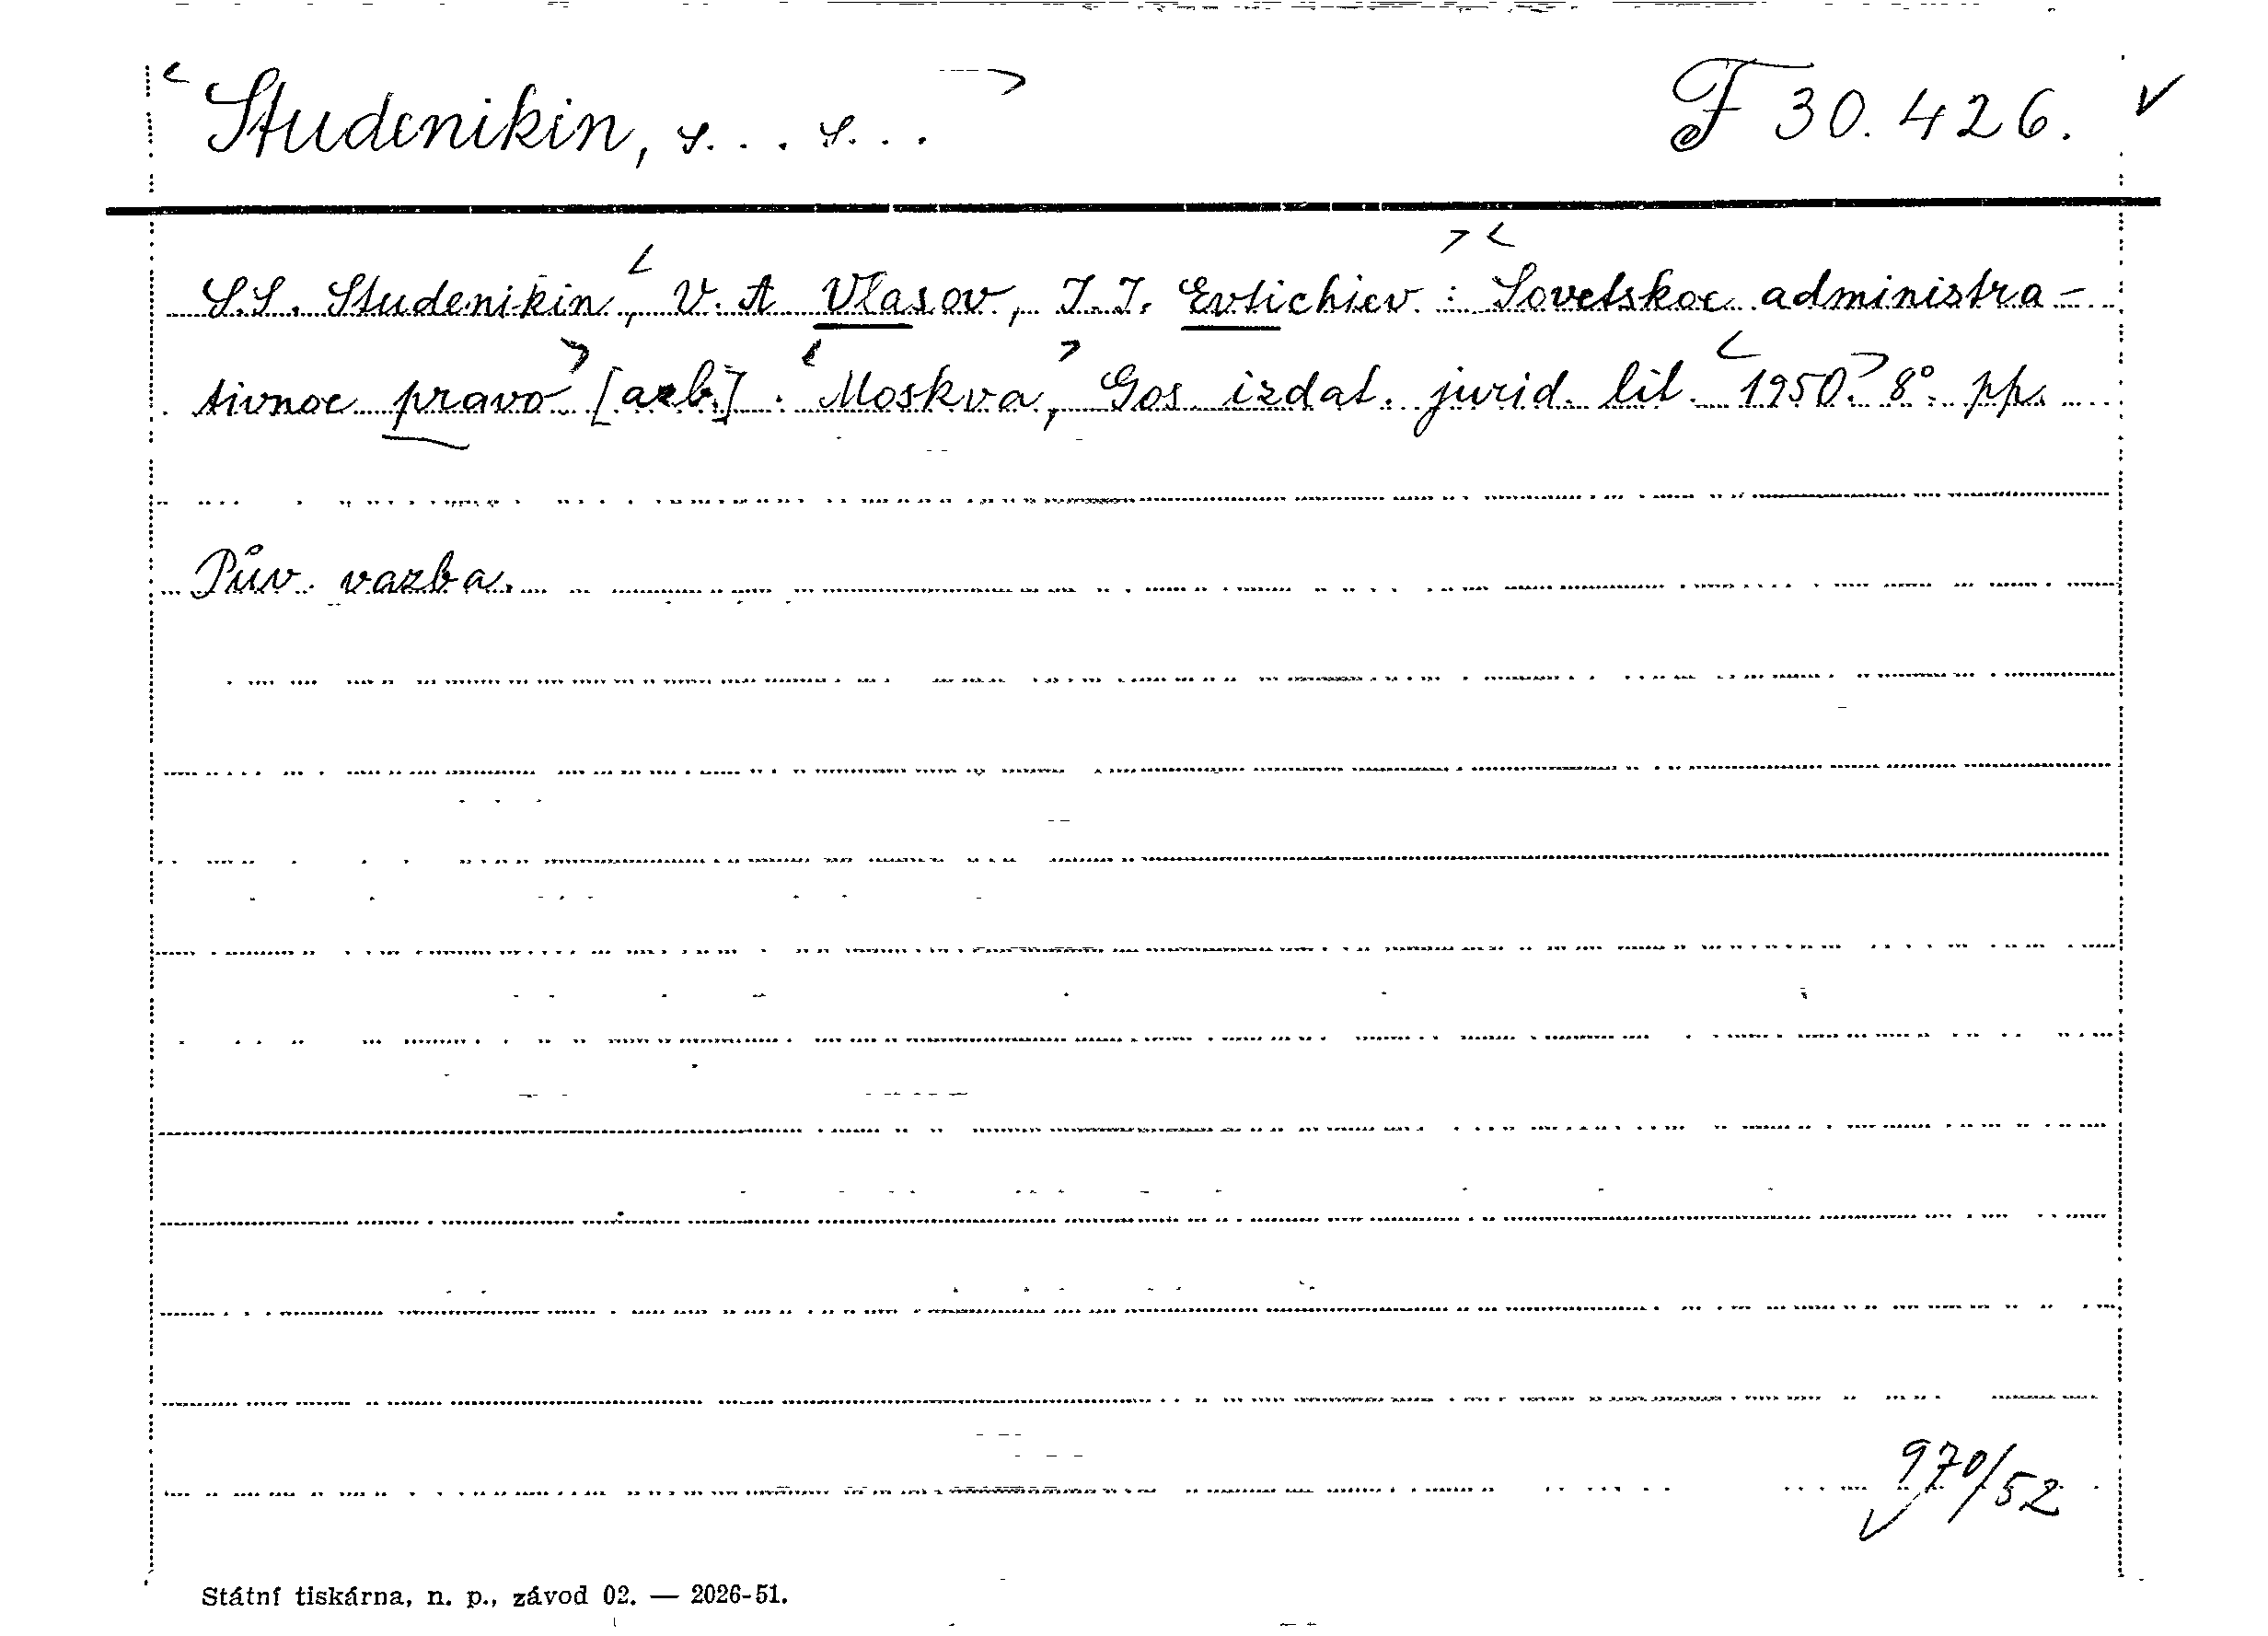 Studenikin, S... S... F 30.426.
S.S. Studenikin, V. A Vlasov, I.I. Evtichiev : Sovetskoe administra-
tivnoe pravo [azb.]. Moskva, Gos. izdat. jurid. lit. 1950. 8°. pp.
Pův. vazba.
970/52
Státní tiskárna, n. p., závod 02. — 2026-51.